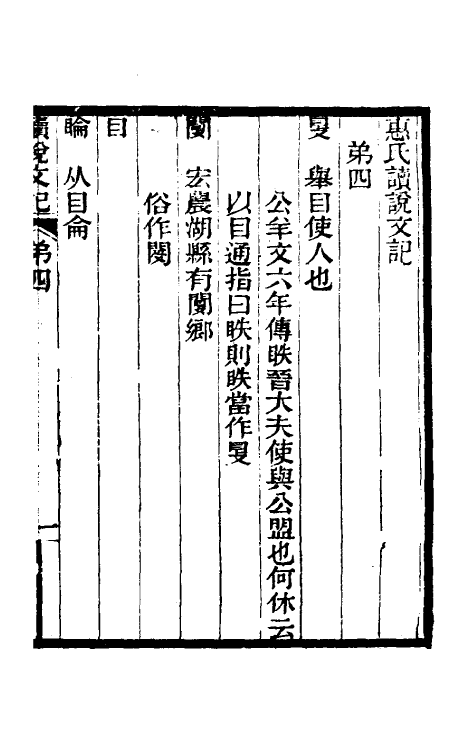 惠氏讀說文記
弟四
𡕥 舉目使人也
公羊文六年傳眣晉大夫使與公盟也何休云
以目通指曰眣則眣當作𡕥
閺 宏農湖縣有閺鄉
俗作閿
目
睔 从目侖
讀說文記 弟四 一